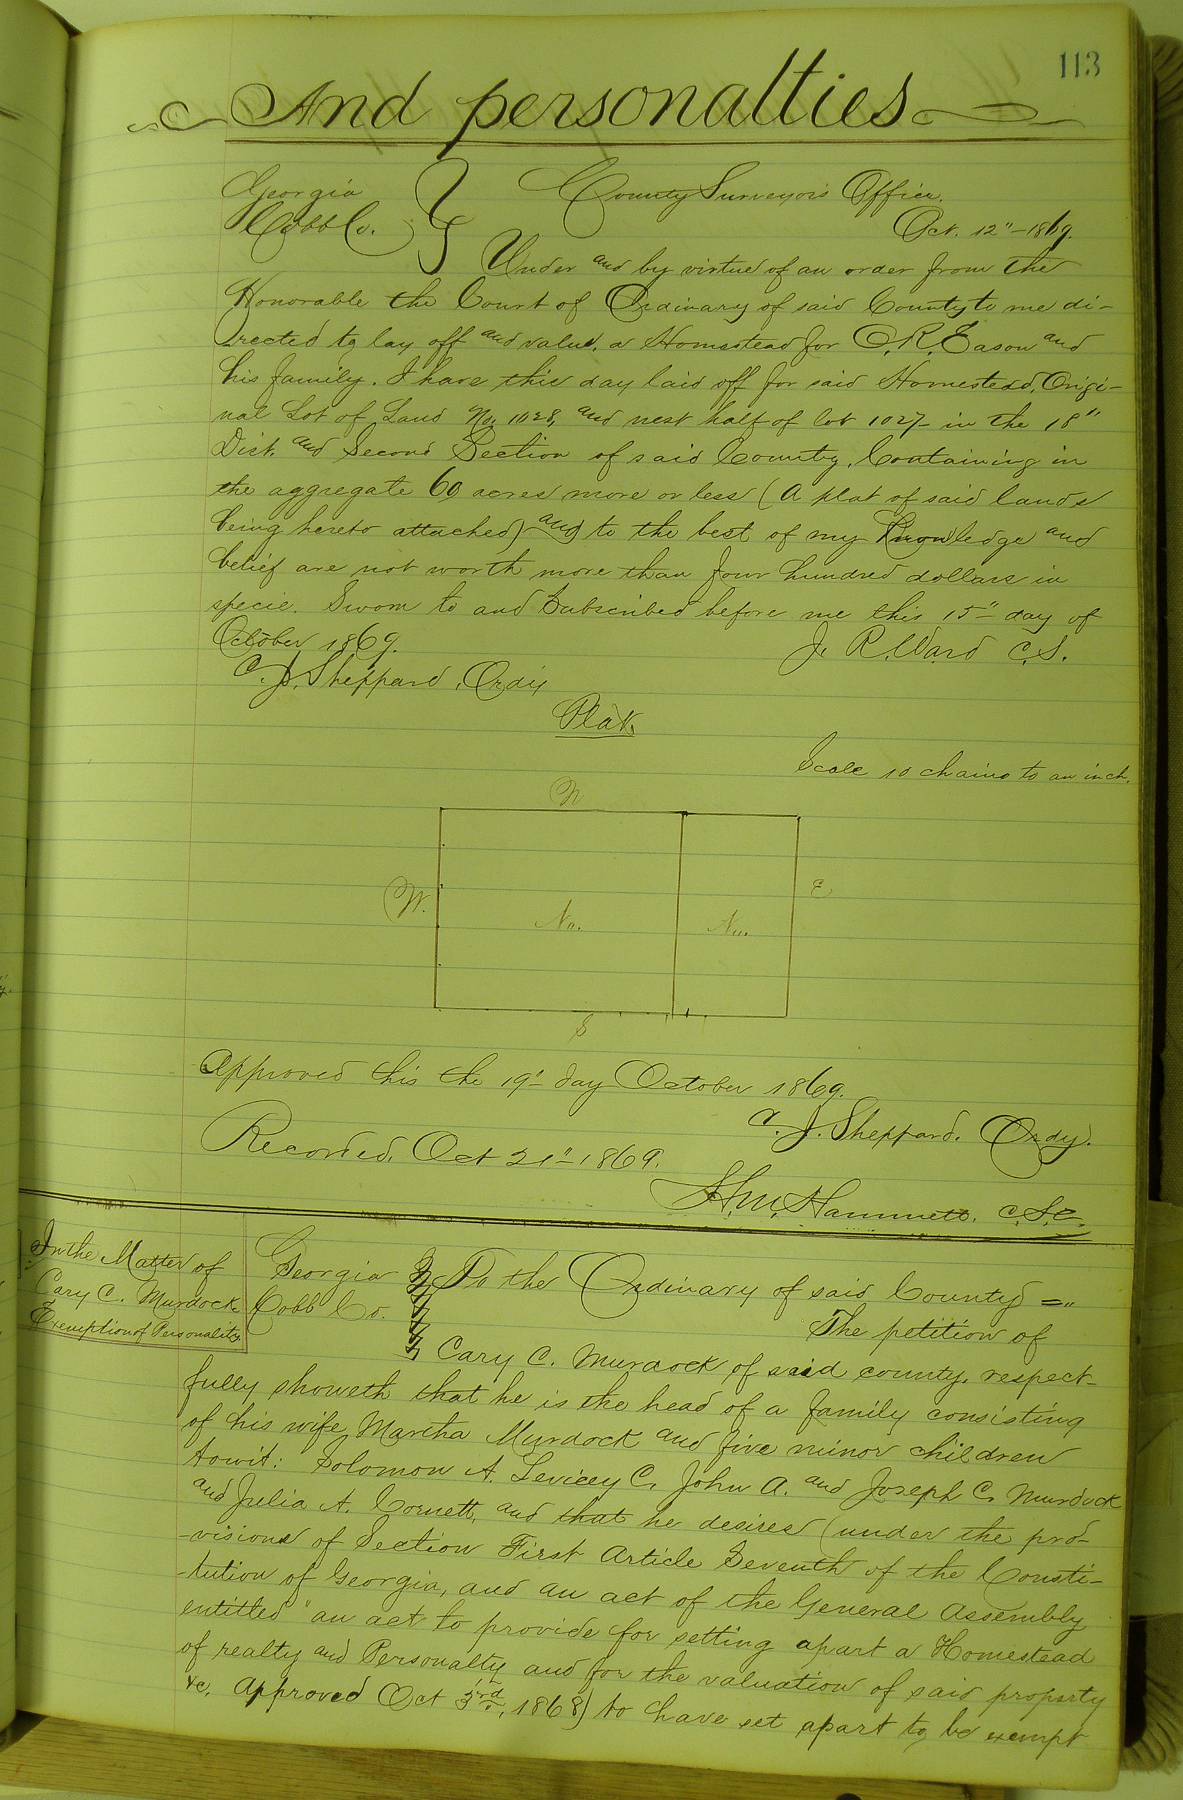 113
And personalties
Georgia
Cobb Co.
County Surveyor's Office.
Oct. 12"-1869.
Under and by virtue of an order from the
Honorable the Court of Ordinary of said County to me di-
rected to lay off and value, a Homestead for O. R. Eason and
his family. I have this day laid off for said Homestead, Origi-
nal Lot of Land No. 1028, and west half of lot 1027 in the 18"
Dist. and Second Section of said County, Containing in
the aggregate 60 acres more or less (A plat of said lands
being hereto attached) and to the best of my Knowledge and
belief are not worth more than four hundred dollars in
specie. Sworn to and Subscribed before me this 15" day of
October 1869.
J. R. Ward C.S.
C. J. Sheppard, Ordy
Plat.
Scale 10 chains to an inch.
N
W.
No.
No.
E
S
Approved this the 19" day October 1869.
C. J. Sheppard. Ordy.
Recorded, Oct 21"-1869.
H. M. Hammett. C.S.C.
In the Matter of
Cary C. Murdock
Exemption of Personality
Georgia
Cobb Co.
To the Ordinary of said County ="
The petition of
Cary C. Murdock of said county, respect-
fully showeth that he is the head of a family consisting
of his wife Martha Murdock and five minor children
towit: Solomon A. Levicey C. John A. and Joseph C. Murdock
and Julia A. Cornett, and that he desires (under the pro-
-visions of Section First Article Seventh of the Consti-
-tution of Georgia, and an act of the General Assembly
entitled "an act to provide for setting apart a Homestead
of realty and Personalty and for the valuation of said property
&c. Approved Oct 3rd, 1868) to have set apart to be exempt